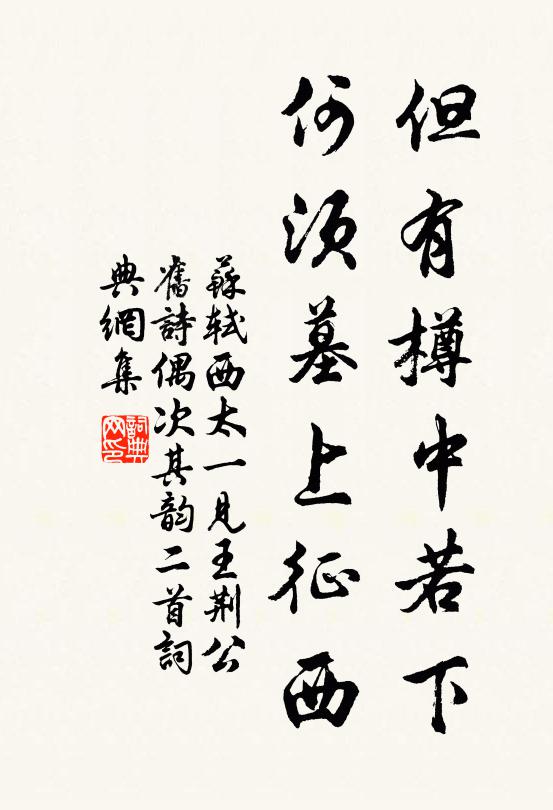 但有樽中若下
何須墓上征西
蘇軾西太一見王荊公
舊詩偶次其韵二首詞
典網集
詞典网印